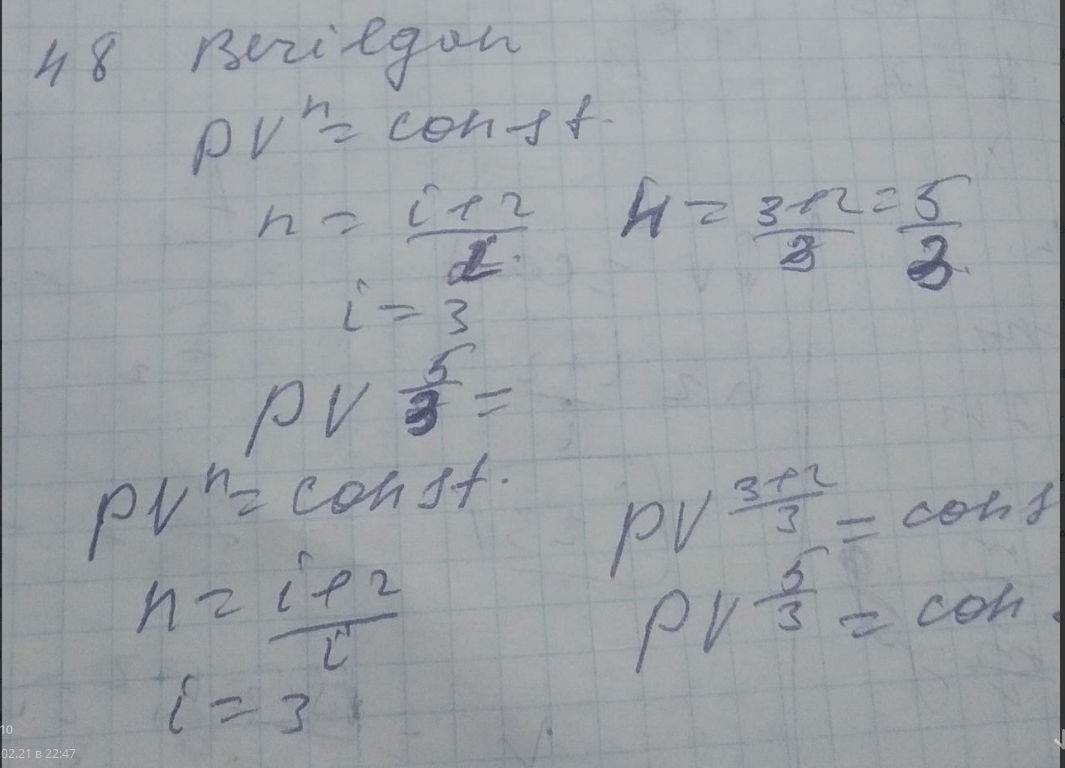 48 Berilgan
pV^n = const.
n = (i+2)/2. n = (3+2)/3 = 5/3.
i = 3
pV^(5/3) =
pV^n = const. pV^((3+2)/3) = cons
n = (i+2)/i pV^(5/3) = con
i = 3
10
.02.21 в 22:47